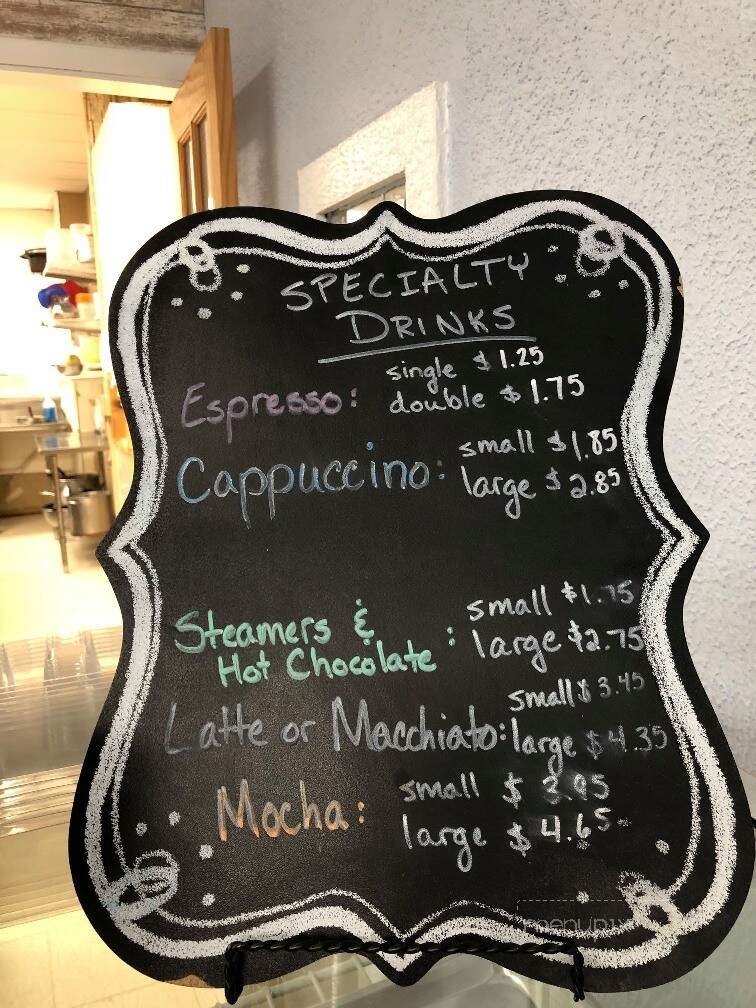 SPECIALTY
DRINKS
Espresso: single $1.25
double $1.75
Cappuccino: small $1.85
large $2.85
Steamers & small $1.75
Hot Chocolate: large $2.75
small $3.45
Latte or Macchiato: large $4.35
Mocha: small $3.95
large $4.65
menupix